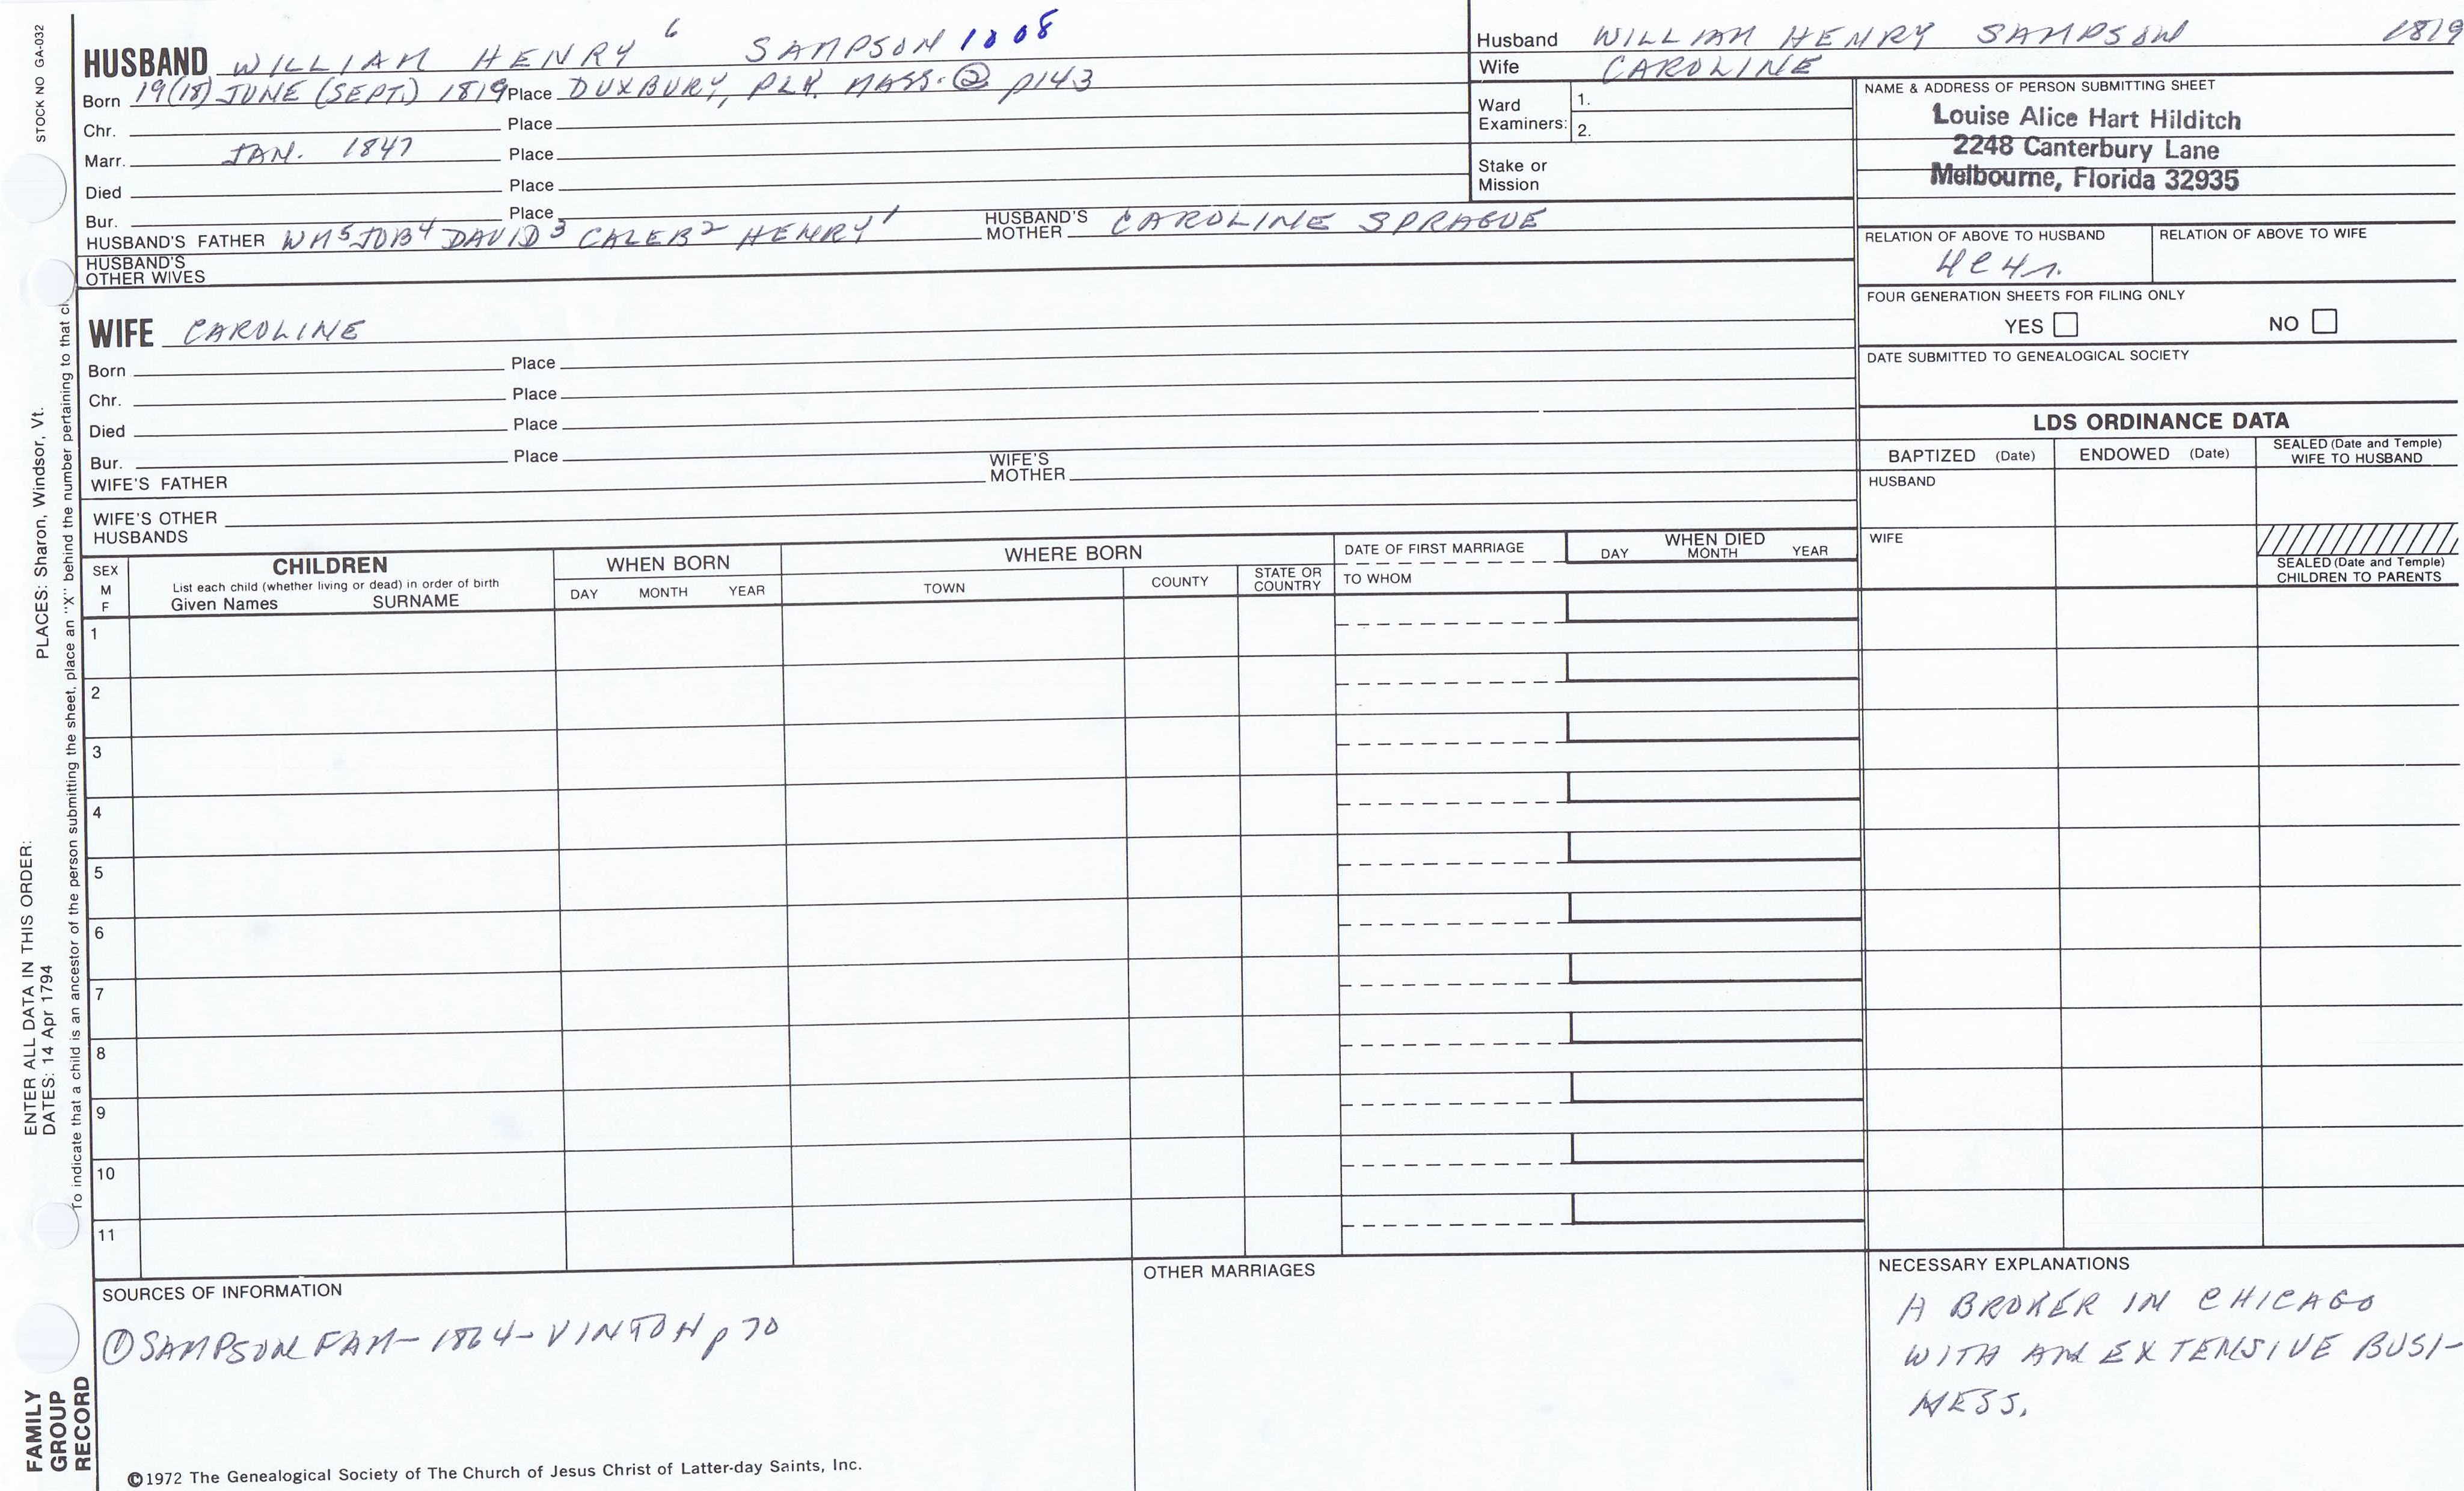 STOCK NO GA-032
PLACES: Sharon, Windsor, Vt.
ENTER ALL DATA IN THIS ORDER:
DATES: 14 Apr 1794
To indicate that a child is an ancestor of the person submitting the sheet, place an "X" behind the number pertaining to that c
FAMILY
GROUP
RECORD
HUSBAND WILLIAM HENRY 6 SAMPSON 1008
Born 19(18) JUNE (SEPT.) 1819 Place DUXBURY, PLY. MASS. ② p143
Chr. Place
Marr. JAN. 1847 Place
Died Place
Bur. Place
HUSBAND'S FATHER WM5 JOB4 DAVID3 CALEB2 HENRY1 HUSBAND'S MOTHER CAROLINE SPRAGUE
HUSBAND'S
OTHER WIVES
WIFE CAROLINE
Born Place
Chr. Place
Died Place
Bur. Place
WIFE'S FATHER WIFE'S MOTHER
WIFE'S OTHER
HUSBANDS
Husband WILLIAM HENRY SAMPSON 1819
Wife CAROLINE
Ward
Examiners: 1.
2.
Stake or
Mission
NAME & ADDRESS OF PERSON SUBMITTING SHEET
Louise Alice Hart Hilditch
2248 Canterbury Lane
Melbourne, Florida 32935
RELATION OF ABOVE TO HUSBAND RELATION OF ABOVE TO WIFE
4C4r.
FOUR GENERATION SHEETS FOR FILING ONLY
YES NO
DATE SUBMITTED TO GENEALOGICAL SOCIETY
LDS ORDINANCE DATA
BAPTIZED (Date) ENDOWED (Date) SEALED (Date and Temple)
WIFE TO HUSBAND
HUSBAND
WIFE
SEALED (Date and Temple)
CHILDREN TO PARENTS
SEX
M
F
CHILDREN
List each child (whether living or dead) in order of birth
Given Names SURNAME
WHEN BORN
DAY MONTH YEAR
WHERE BORN
TOWN COUNTY STATE OR COUNTRY
DATE OF FIRST MARRIAGE
TO WHOM
WHEN DIED
DAY MONTH YEAR
1
2
3
4
5
6
7
8
9
10
11
SOURCES OF INFORMATION
① SAMPSON FAM - 1864 - VINTON p 70
OTHER MARRIAGES
NECESSARY EXPLANATIONS
A BROKER IN CHICAGO
WITH AN EXTENSIVE BUSI-
NESS.
©1972 The Genealogical Society of The Church of Jesus Christ of Latter-day Saints, Inc.